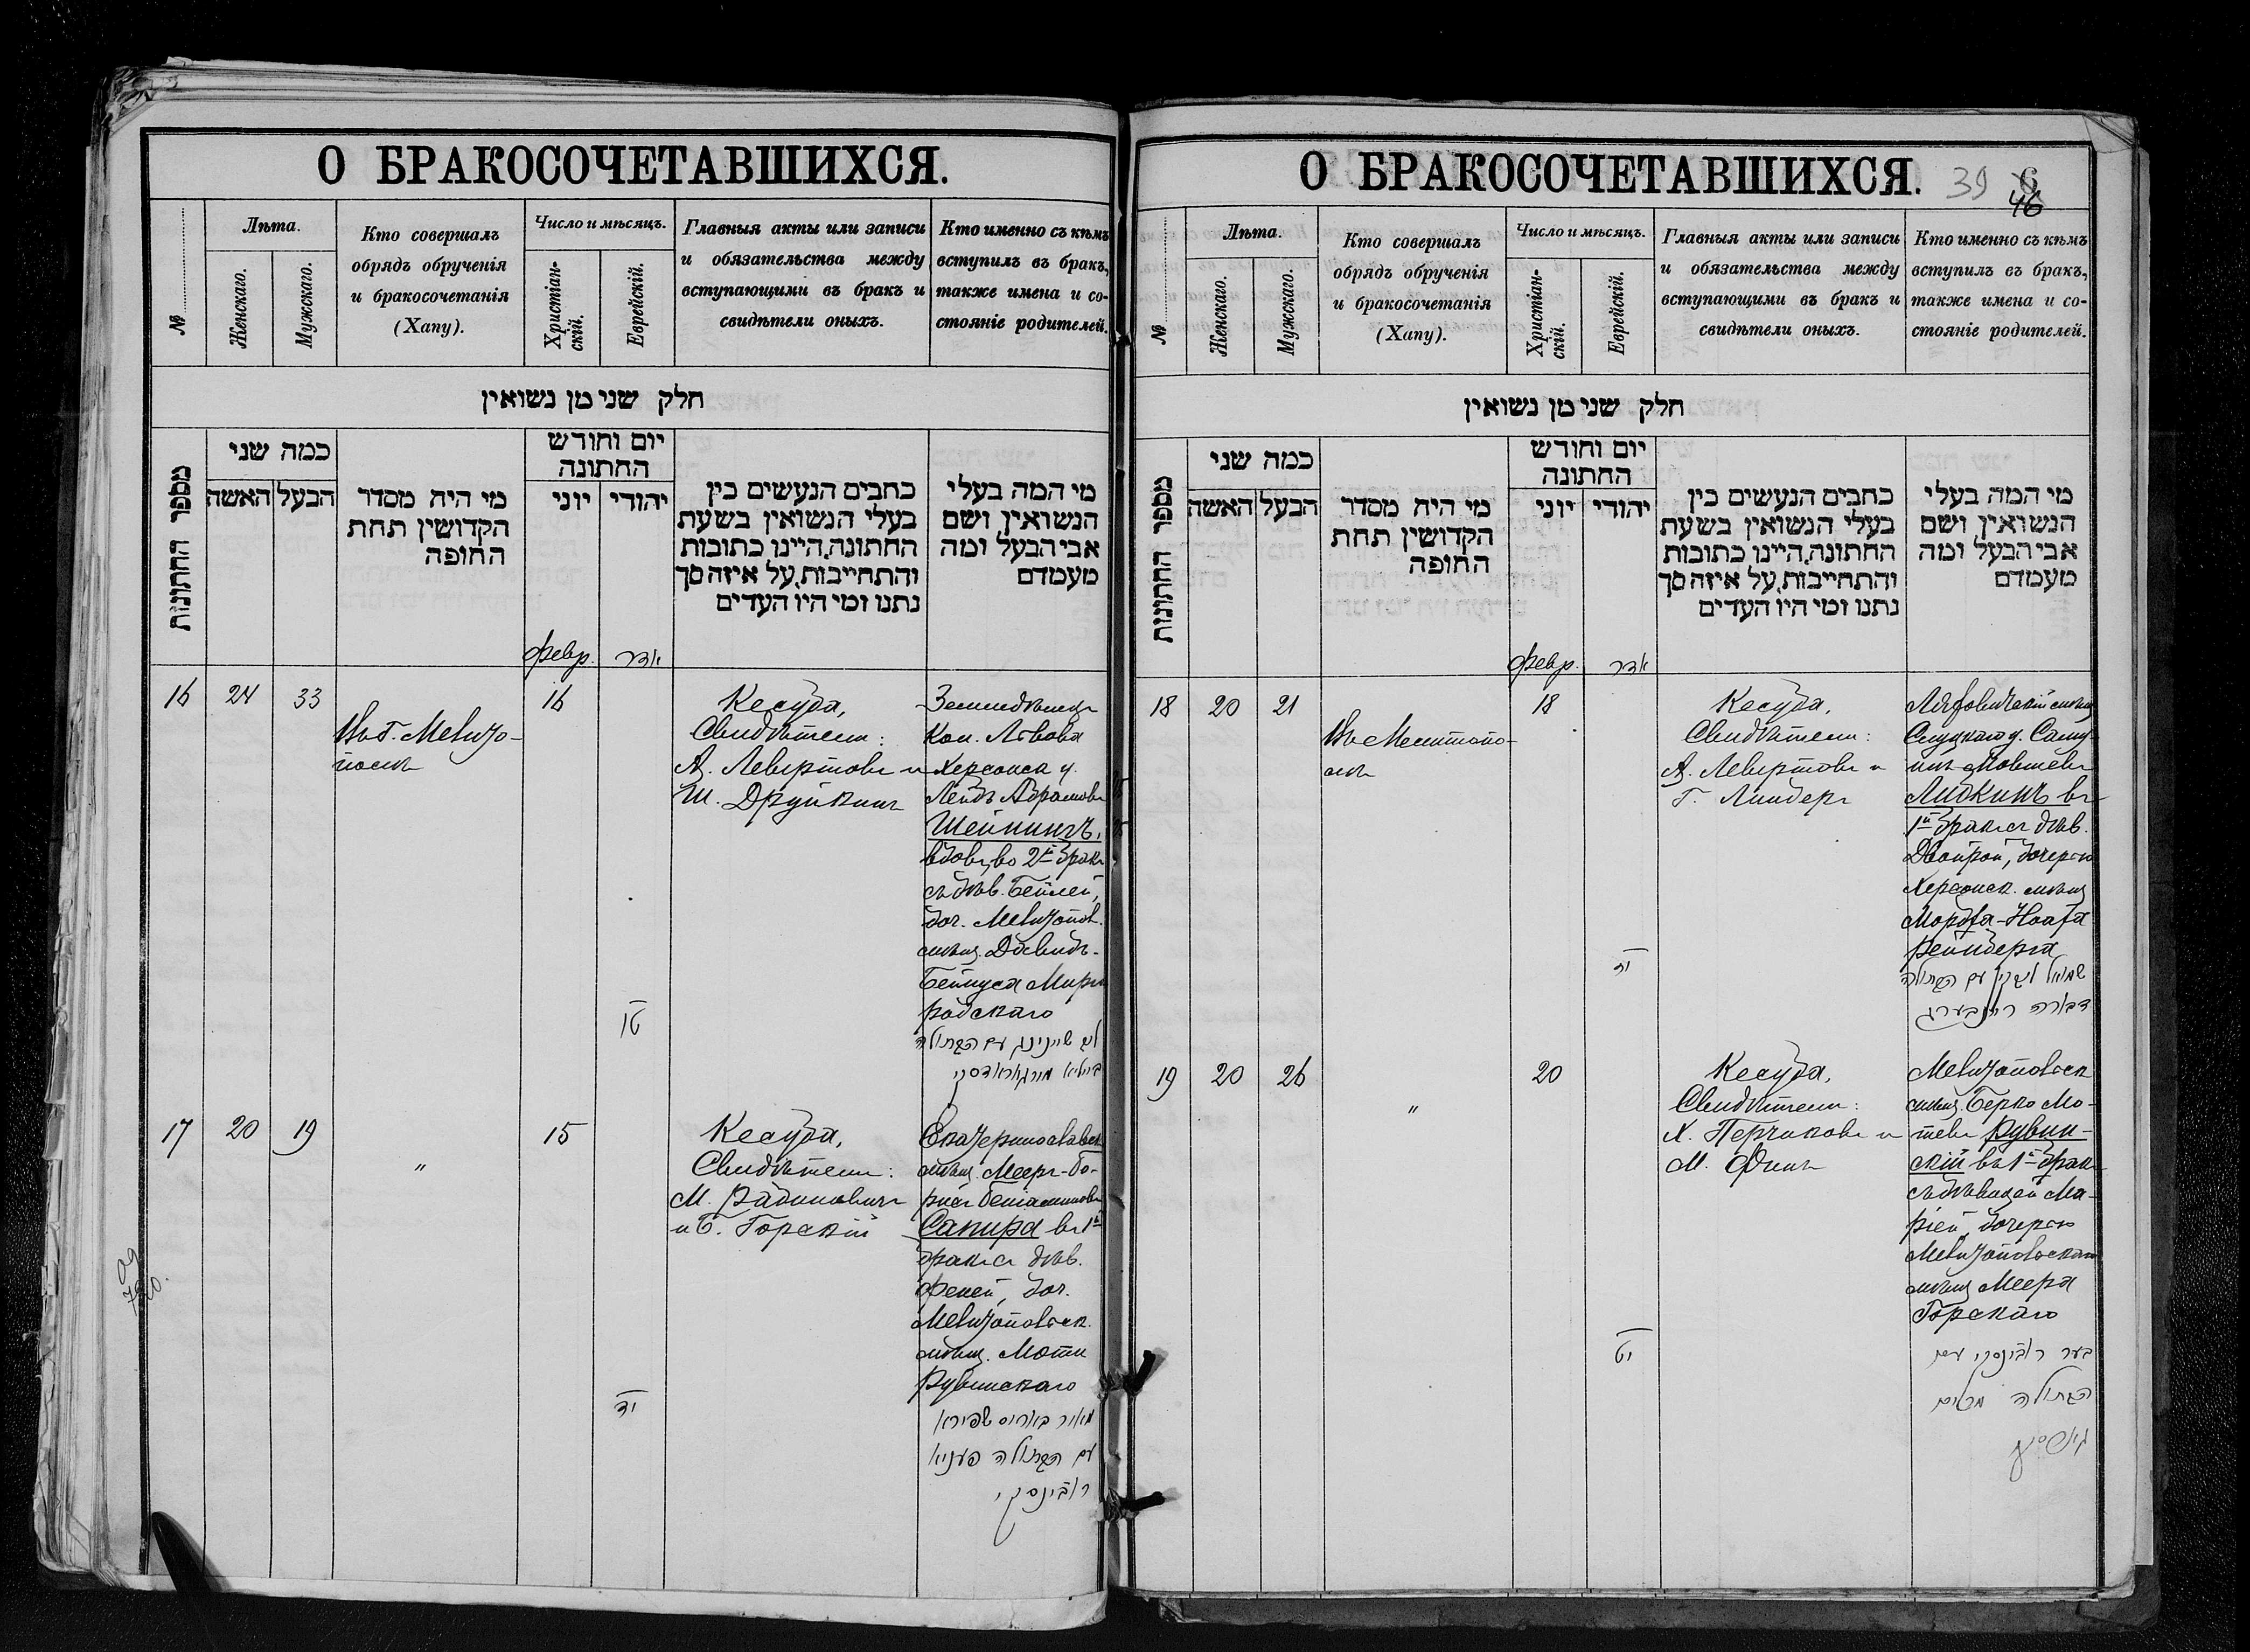 О БРАКОСОЧЕТАВШИХСЯ.
№
Лѣта.
Женскаго.
Мужскаго.
Кто совершалъ
обрядъ обрученія
и бракосочетанія
(Хапу).
Число и мѣсяцъ.
Христіан-
скій.
Еврейскій.
Главныя акты или записи
и обязательства между
вступающими въ бракъ и
свидѣтели оныхъ.
Кто именно съ кѣмъ
вступилъ въ бракъ,
также имена и со-
стояніе родителей.
חלק שני מן נשואין
מספר החתונות
כמה שני
האשה
הבעל
מי היה מסדר
הקדושין תחת
החופה
יום וחודש
החתונה
יוני
יהודי
כתבים הנעשים בין
בעלי הנשואין בשעת
החתונה,היינו כתובות
והתחייבות,על איזה סך
נתנו ומי היו העדים
מי המה בעלי
הנשואין ושם
אבי הבעל ומה
מעמדם
февр.
אדר
16
24
33
Въ г. Мелито-
полѣ
16
טו
Кесуба,
Свидѣтели:
А. Левертовъ и
Ш. Друйкинъ
Земледѣлецъ
Кол. Львова
Херсонск у.
Лейбъ Абрамовъ
Шейнинъ,
вдовъ, во 2й бракъ
съ дѣв. Бейлей,
доч. Мелитопол.
мѣщ. Давидъ-
Бейнуса Мирго
родскаго
ליב שיינינג עם הבתולה
ביילא מירגאראדסקי
17
20
19
"
15
יד
Кесуба,
Свидѣтели:
М. Рабиновичъ
и Б. Горскій
Екатеринославск
мѣщ. Мееръ-Бо-
рисъ Беніаминовъ
Сапира въ 1й
бракъ съ дѣв.
Феней, доч.
Мелитопольск.
мѣщ. Моти
Рувинскаго
מאיר באריס שפירא
עם הבתולה פעניא
ראבינסקי
О БРАКОСОЧЕТАВШИХСЯ.
39
46
№
Лѣта.
Женскаго.
Мужскаго.
Кто совершалъ
обрядъ обрученія
и бракосочетанія
(Хапу).
Число и мѣсяцъ.
Христіан-
скій.
Еврейскій.
Главныя акты или записи
и обязательства между
вступающими въ бракъ и
свидѣтели оныхъ.
Кто именно съ кѣмъ
вступилъ въ бракъ,
также имена и со-
стояніе родителей.
חלק שני מן נשואין
מספר החתונות
כמה שני
האשה
הבעל
מי היה מסדר
הקדושין תחת
החופה
יום וחודש
החתונה
יוני
יהודי
כתבים הנעשים בין
בעלי הנשואין בשעת
החתונה,היינו כתובות
והתחייבות,על איזה סך
נתנו ומי היו העדים
מי המה בעלי
הנשואין ושם
אבי הבעל ומה
מעמדם
февр.
אדר
18
20
21
Въ Мелитопо-
лѣ
18
יז
Кесуба,
Свидѣтели:
А. Левертовъ и
Г. Линдеръ
Ляховичскій мѣщ
Слуцкаго у. Саму-
илъ Мовшевъ
Лидкинъ въ
1й бракъ съ дѣв.
Двойрой, дочерью
Херсонск. мѣщ
Мордха-Ноаха
Рейнберга
שמואל לידקין עם הבתולה
דבורה ריינבערג
19
20
26
"
20
יט
Кесуба,
Свидѣтели:
Х. Перчиковъ и
М. Финъ
Мелитопольск
мѣщ. Берко Мо-
тевъ Рувин-
скій въ 1й бракъ
съ дѣвицей Ма-
ріей, дочерью
Мелитопольскаго
мѣщ Меера
Горскаго
בער ראבינסקי עם
הבתולה מרים